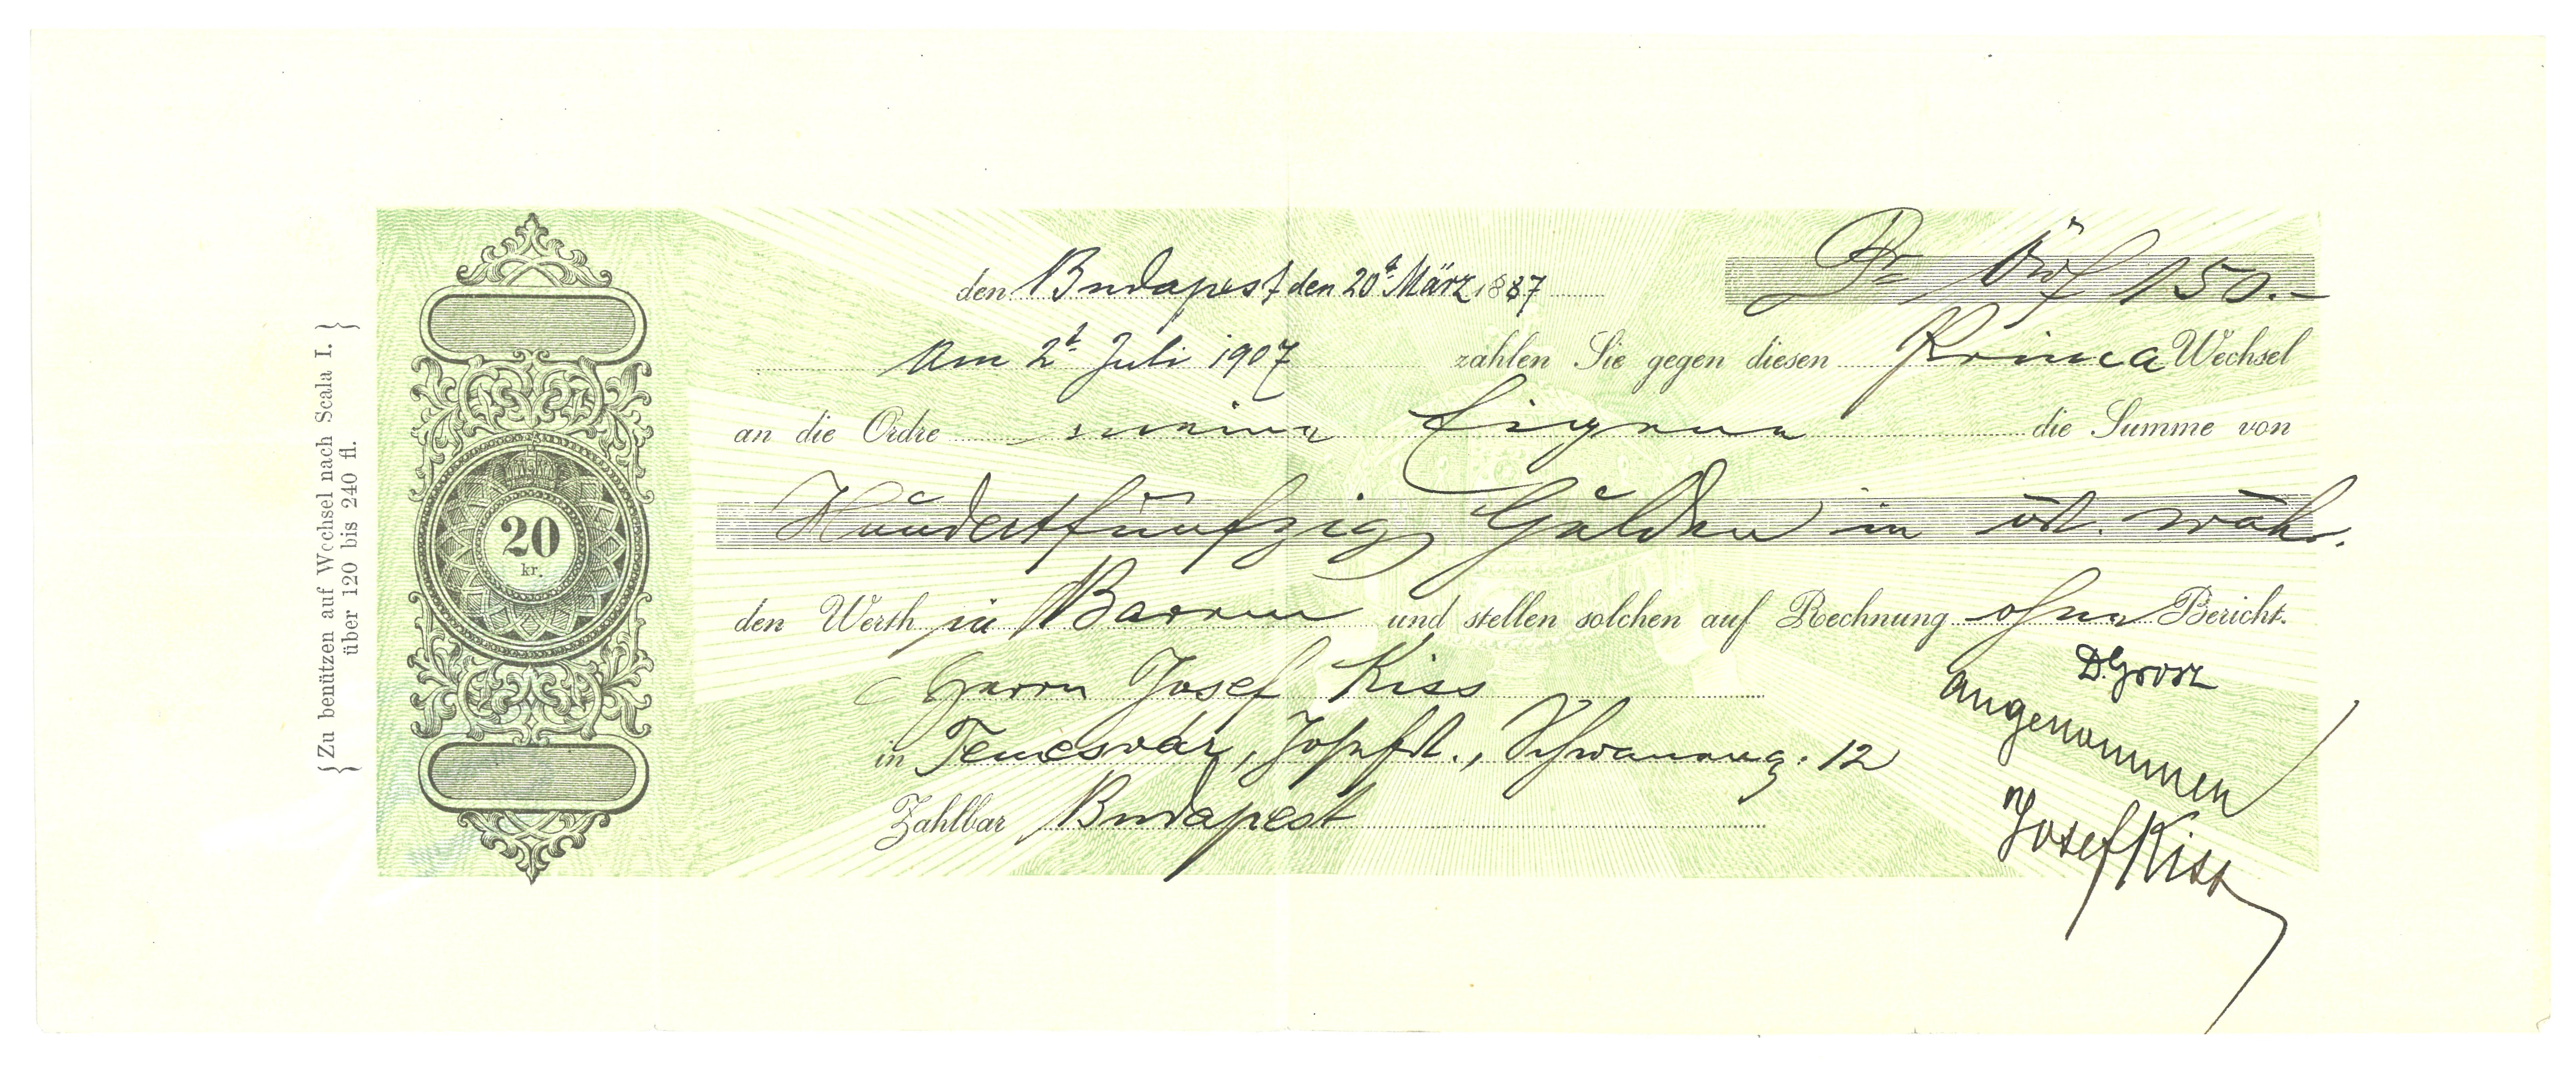 {Zu benützen auf Wechsel nach Scala I.}
{über 120 bis 240 fl.}
20
kr.
den Budapest den 20t März 1887
Pr öwf 150.-
Am 2t Juli 1907 zahlen Sie gegen diesen Prima Wechsel
an die Ordre meine Eigene die Summe von
Hundertfünfzig Gulden in öst. Währ.
den Werth in Baaren und stellen solchen auf Rechnung ohne Bericht.
D. Grosz
Herrn Josef Kiss
in Temesvár, Josefst., Schwaneng. 12
Zahlbar Budapest
angenommen
Josef Kiss